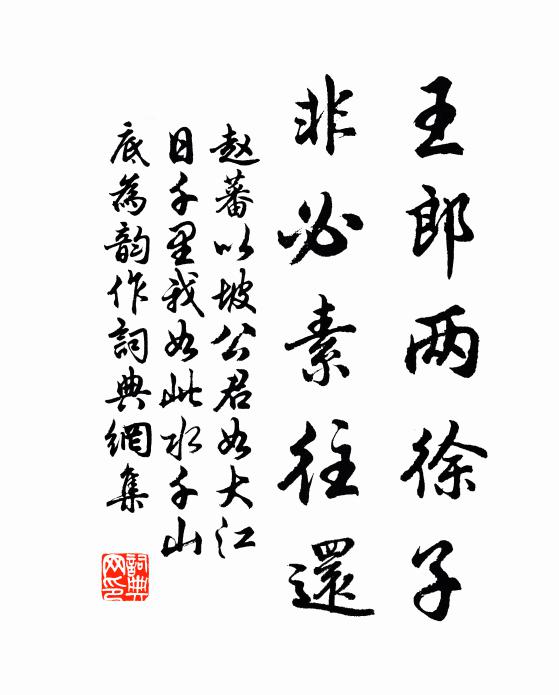 王郎两徐子
非必素往還
赵蕃以坡公君如大江
日千里我如此水千山
底為韵作詞典網集
詞典網印